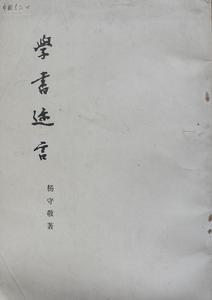 學書迩言
楊守敬著